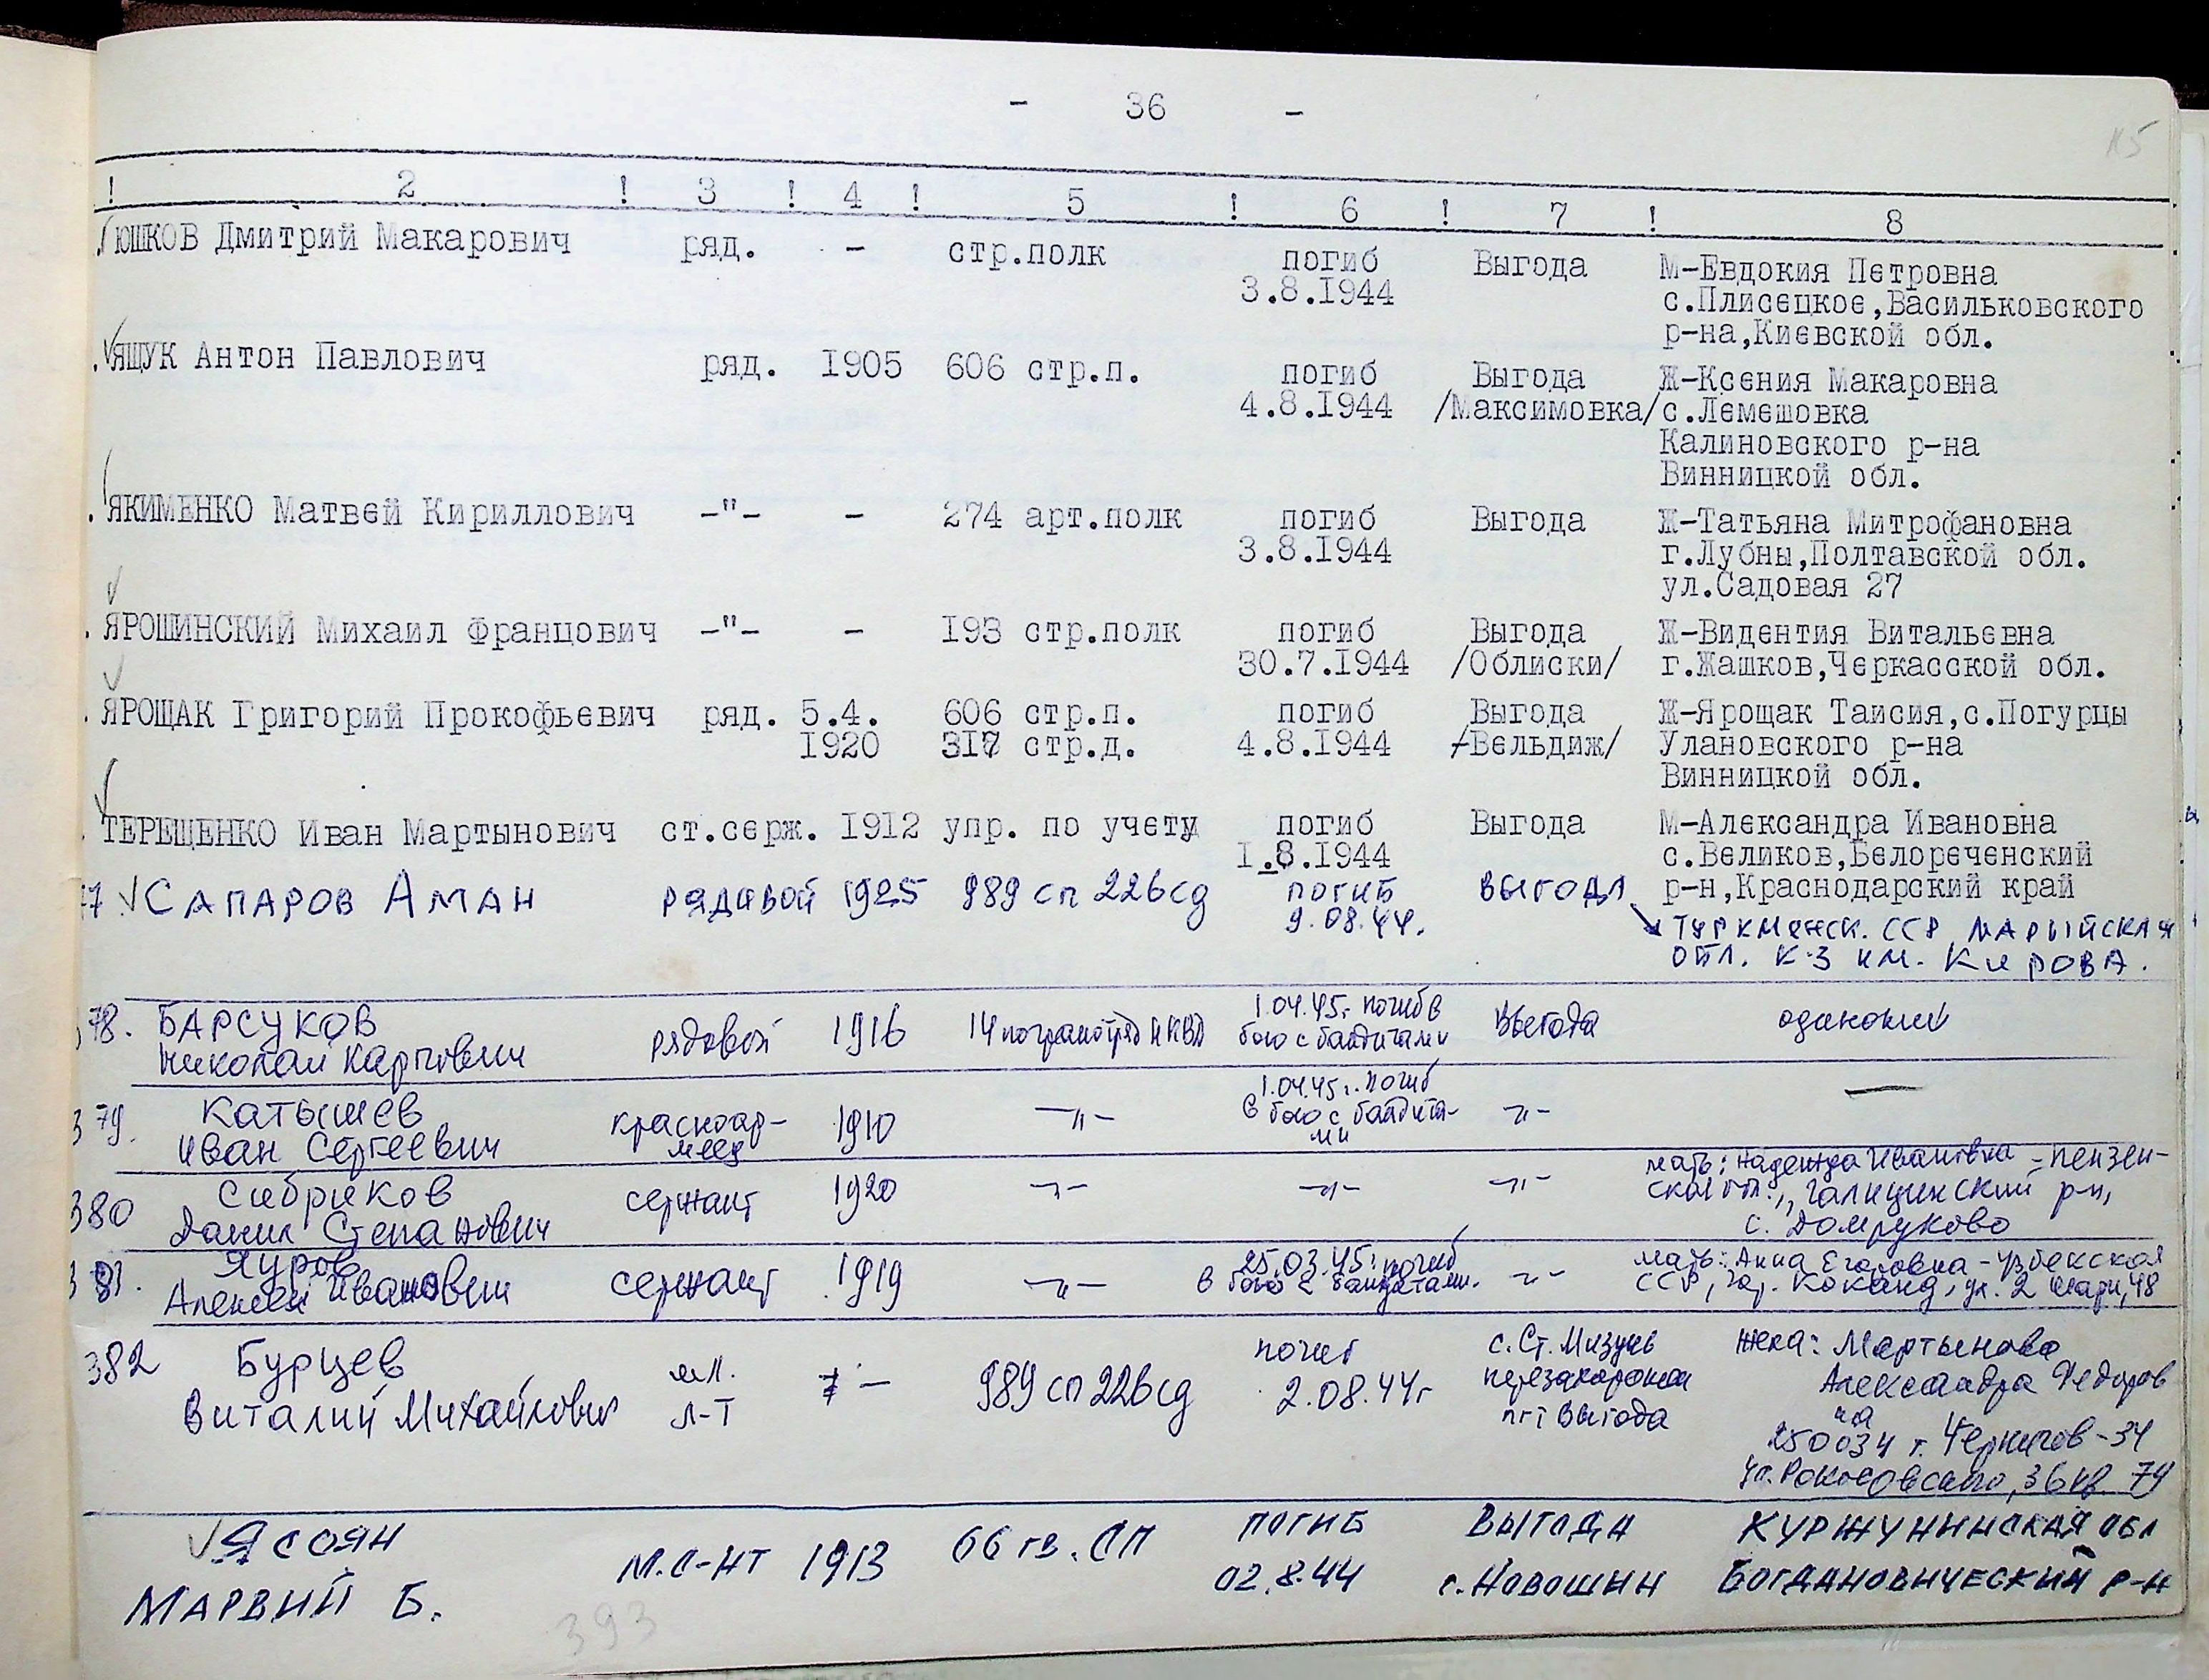 - 36 -
115
! 2 ! 3 ! 4 ! 5 ! 6 ! 7 ! 8
ЮШКОВ Дмитрий Макарович ряд. - стр.полк погиб Выгода М-Евдокия Петровна
3.8.1944 с.Плисецкое,Васильковского
р-на,Киевской обл.
ЯЩУК Антон Павлович ряд. 1905 606 стр.п. погиб Выгода Ж-Ксения Макаровна
4.8.1944 /Максимовка/ с.Лемешовка
Калиновского р-на
Винницкой обл.
ЯКИМЕНКО Матвей Кириллович -"- - 274 арт.полк погиб Выгода Ж-Татьяна Митрофановна
3.8.1944 г.Лубны,Полтавской обл.
ул.Садовая 27
ЯРОШИНСКИЙ Михаил Францович -"- - 193 стр.полк погиб Выгода Ж-Видентия Витальевна
30.7.1944 /Облиски/ г.Жашков,Черкасской обл.
ЯРОЩАК Григорий Прокофьевич ряд. 5.4. 606 стр.п. погиб Выгода Ж-Ярощак Таисия,с.Погурцы
1920 317 стр.д. 4.8.1944 /Вельдиж/ Улановского р-на
Винницкой обл.
ТЕРЕЩЕНКО Иван Мартынович ст.серж. 1912 упр. по учету погиб Выгода М-Александра Ивановна
1.8.1944 с.Великов,Белореченский
р-н,Краснодарский край
77. САПАРОВ АМАН рядавой 1925 989 сп 226 сд погиб ВЫГОДА
9.08.44. Туркменск. ССР МАРЫЙСКАЯ
обл. К-З им. КИРОВА.
378. БАРСУКОВ рядовой 1916 14 погранотряд НКВД 1.04.45г. погиб в Выгода одинокий
Николай Карпович бою с бандитами
379. Катышев красноар- 1910 -"- 1.04.45г. погиб -"- —
Иван Сергеевич меец в бою с бандита-
ми
380 Сибриков сержант 1920 -"- -"- -"- мать: Надежда Ивановна - Пензен-
Данил Степанович ская обл., Галицинский р-н,
с. Домруково
381. Яуров сержант 1919 -"- 25.03.45г. погиб -"- мать: Анна Егоровна - Узбекская
Алексей Иванович в бою с бандитами. ССР, гор. Коканд, ул. 2 48
382 Бурцев мл. — 989 сп 226 сд погиб с. Ст. Мизунь жена: Мартынова
Виталий Михайлович л-т 2.08.44г перезахоронен Александра Федоров
пгт Выгода на
250034 г. Чернигов-34
ул. Рокосовского, 36 кв. 74
ЯСОЯН М.С-НТ 1913 66 гв. СП ПОГИБ ВЫГОДА КУРЖУНИНСКАЯ ОБЛ
МАРВИЙ Б. 02.8.44 с.Новошин БОГДАНОВИЧЕСКИЙ Р-Н
393